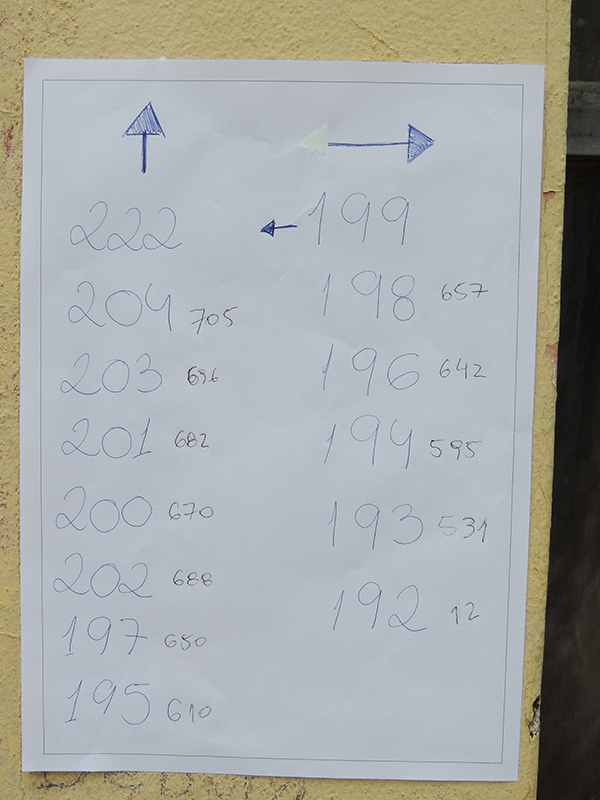 222
204 705
203 696
201 682
200 670
202 688
197 650
195 610
199
198 657
196 642
194 595
193 531
192 12